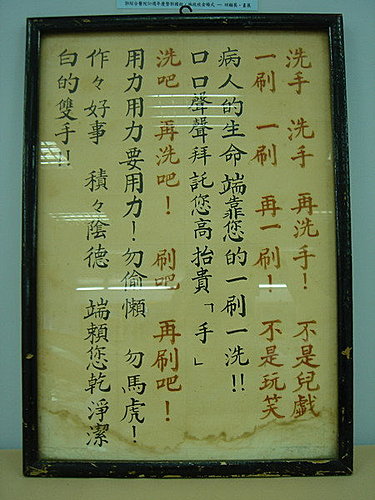 洗手　洗手　再洗手！　不是兒戲
一刷　一刷　再一刷！　不是玩笑
病人的生命　端靠您的一刷一洗!!
口口聲聲拜託您高抬貴「手」
洗吧　再洗吧！　刷吧　再刷吧！
用力用力要用力！勿偷懶　勿馬虎！
作々好事　積々陰德　端賴您乾淨潔
白的雙手!!